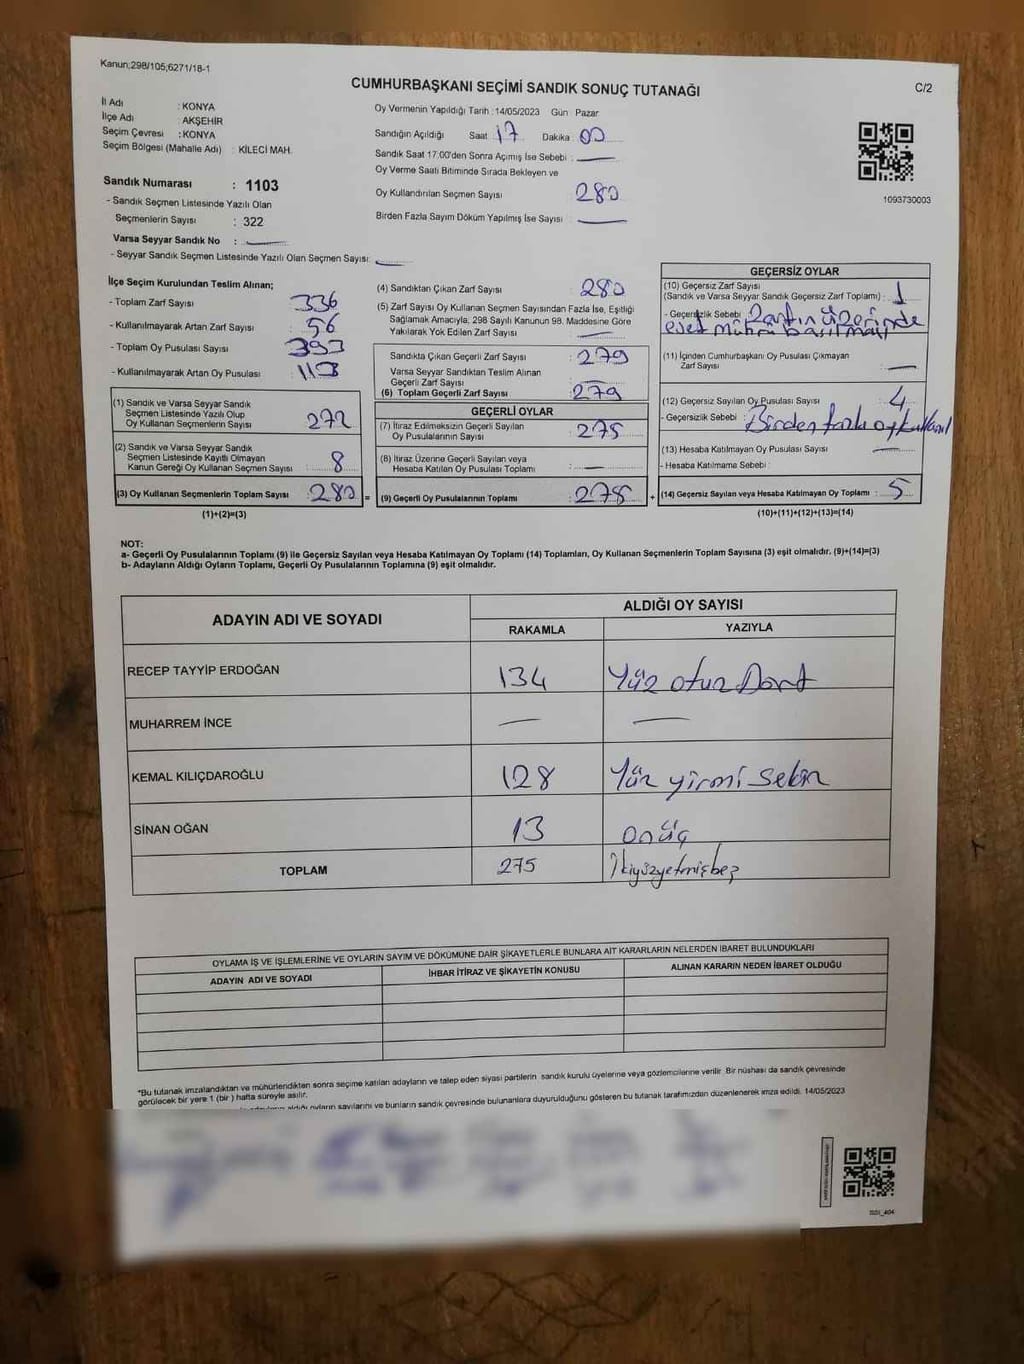 Kanun;298/105;6271/18-1
CUMHURBAŞKANI SEÇİMİ SANDIK SONUÇ TUTANAĞI
C/2
İl Adı : KONYA
İlçe Adı : AKŞEHİR
Seçim Çevresi : KONYA
Seçim Bölgesi (Mahalle Adı) : KİLECİ MAH.
Sandık Numarası : 1103
- Sandık Seçmen Listesinde Yazılı Olan
Seçmenlerin Sayısı : 322
Varsa Seyyar Sandık No :
- Seyyar Sandık Seçmen Listesinde Yazılı Olan Seçmen Sayısı:
Oy Vermenin Yapıldığı Tarih : 14/05/2023 Gün : Pazar
Sandığın Açıldığı Saat : 17 Dakika : 00
Sandık Saat 17:00'den Sonra Açımış İse Sebebi :
Oy Verme Saati Bitiminde Sırada Bekleyen ve
Oy Kullandırılan Seçmen Sayısı : 280
Birden Fazla Sayım Döküm Yapılmış İse Sayısı :
1093730003
İlçe Seçim Kurulundan Teslim Alınan;
- Toplam Zarf Sayısı : 336
- Kullanılmayarak Artan Zarf Sayısı : 56
- Toplam Oy Pusulası Sayısı : 393
- Kullanılmayarak Artan Oy Pusulası : 113
(1) Sandık ve Varsa Seyyar Sandık
Seçmen Listesinde Yazılı Olup
Oy Kullanan Seçmenlerin Sayısı : 272
(2) Sandık ve Varsa Seyyar Sandık
Seçmen Listesinde Kayıtlı Olmayan
Kanun Gereği Oy Kullanan Seçmen Sayısı : 8
(3) Oy Kullanan Seçmenlerin Toplam Sayısı : 280 =
(1)+(2)=(3)
(4) Sandıktan Çıkan Zarf Sayısı : 280
(5) Zarf Sayısı Oy Kullanan Seçmen Sayısından Fazla İse, Eşitliği
Sağlamak Amacıyla, 298 Sayılı Kanunun 98. Maddesine Göre
Yakılarak Yok Edilen Zarf Sayısı :
Sandıkta Çıkan Geçerli Zarf Sayısı : 279
Varsa Seyyar Sandıktan Teslim Alınan
Geçerli Zarf Sayısı :
(6) Toplam Geçerli Zarf Sayısı : 279
GEÇERLİ OYLAR
(7) İtiraz Edilmeksizin Geçerli Sayılan
Oy Pusulalarının Sayısı : 275
(8) İtiraz Üzerine Geçerli Sayılan veya
Hesaba Katılan Oy Pusulası Toplamı :
(9) Geçerli Oy Pusulalarının Toplamı : 275 +
GEÇERSİZ OYLAR
(10) Geçersiz Zarf Sayısı
(Sandık ve Varsa Seyyar Sandık Geçersiz Zarf Toplamı) : 1
- Geçersizlik Sebebi : Zarfın üzerinde
evet mührü basılması
(11) İçinden Cumhurbaşkanı Oy Pusulası Çıkmayan
Zarf Sayısı :
(12) Geçersiz Sayılan Oy Pusulası Sayısı : 4
- Geçersizlik Sebebi : Birden fazla oy kullanıl
(13) Hesaba Katılmayan Oy Pusulası Sayısı :
- Hesaba Katılmama Sebebi :
(14) Geçersiz Sayılan veya Hesaba Katılmayan Oy Toplamı : 5
(10)+(11)+(12)+(13)=(14)
NOT:
a- Geçerli Oy Pusulalarının Toplamı (9) ile Geçersiz Sayılan veya Hesaba Katılmayan Oy Toplamı (14) Toplamları, Oy Kullanan Seçmenlerin Toplam Sayısına (3) eşit olmalıdır. (9)+(14)=(3)
b- Adayların Aldığı Oyların Toplamı, Geçerli Oy Pusulalarının Toplamına (9) eşit olmalıdır.
ADAYIN ADI VE SOYADI
ALDIĞI OY SAYISI
RAKAMLA YAZIYLA
RECEP TAYYİP ERDOĞAN 134 Yüz otuz Dört
MUHARREM İNCE
KEMAL KILIÇDAROĞLU 128 Yüz yirmi sekiz
SİNAN OĞAN 13 onüç
TOPLAM 275 İkiyüzyetmişbeş
OYLAMA İŞ VE İŞLEMLERİNE VE OYLARIN SAYIM VE DÖKÜMÜNE DAİR ŞİKAYETLERLE BUNLARA AİT KARARLARIN NELERDEN İBARET BULUNDUKLARI
ADAYIN ADI VE SOYADI İHBAR İTİRAZ VE ŞİKAYETİN KONUSU ALINAN KARARIN NEDEN İBARET OLDUĞU
*Bu tutanak imzalandıktan ve mühürlendikten sonra seçime katılan adayların ve talep eden siyasi partilerin sandık kurulu üyelerine veya gözlemcilerine verilir. Bir nüshası da sandık çevresinde
görülecek bir yere 1 (bir) hafta süreyle asılır.
aldığı oyların sayılarını ve bunların sandık çevresinde bulunanlara duyurulduğunu gösteren bu tutanak tarafımızdan düzenlenerek imza edildi. 14/05/2023